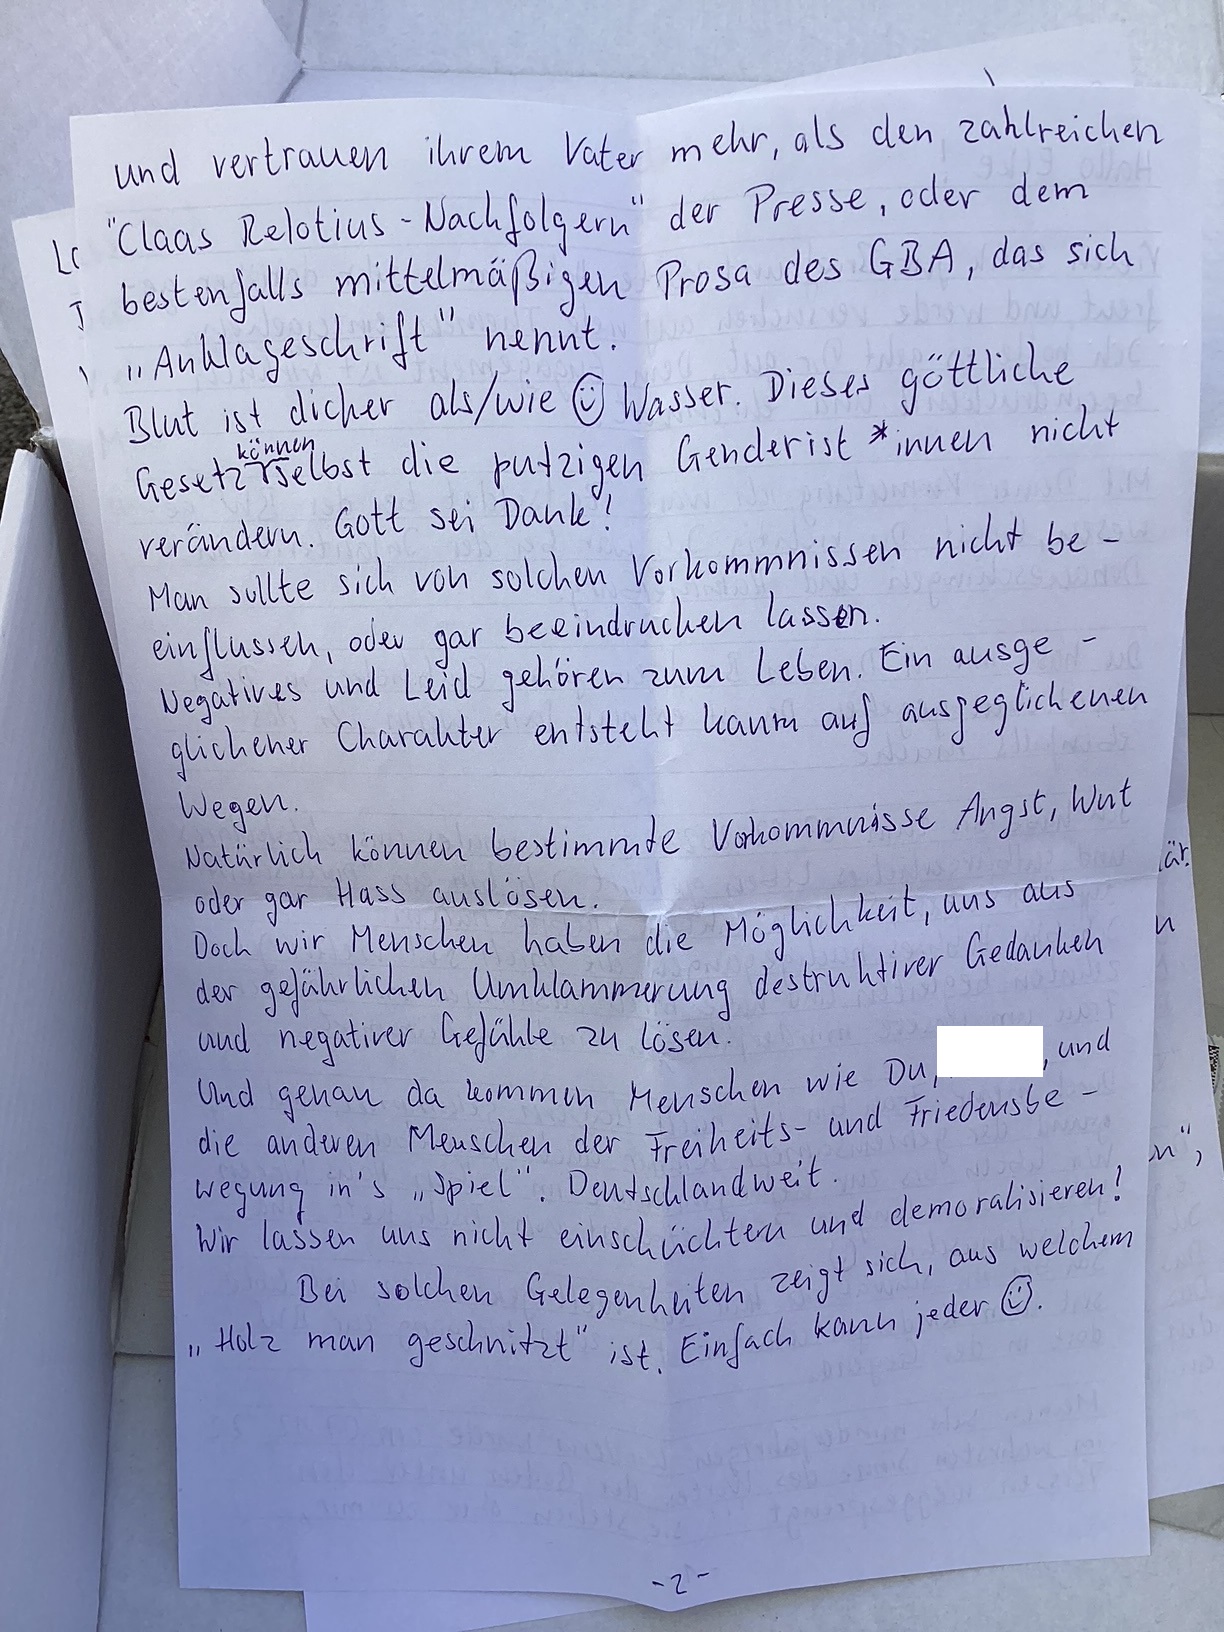 und vertrauen ihrem Vater mehr, als den zahlreichen
"Claas Relotius-Nachfolgern" der Presse, oder dem
bestenfalls mittelmäßigen Prosa des GBA, das sich
„Anklageschrift" nennt.
Blut ist dicher als/wie ☺ Wasser. Dieses göttliche
können
Gesetz selbst die putzigen Genderist*innen nicht
verändern. Gott sei Dank!
Man sollte sich von solchen Vorkommnissen nicht be-
einflussen, oder gar beeindrucken lassen.
Negatives und Leid gehören zum Leben. Ein ausge-
glichener Charakter entsteht kaum auf ausgeglichenen
Wegen.
Natürlich können bestimmte Vorkommnisse Angst, Wut
oder gar Hass auslösen.
Doch wir Menschen haben die Möglichkeit, uns aus
der gefährlichen Umklammerung destruktiver Gedanken
und negativer Gefühle zu lösen.
Und genau da kommen Menschen wie Du, , und
die anderen Menschen der Freiheits- und Friedensbe-
wegung in's „Spiel". Deutschlandweit.
Wir lassen uns nicht einschüchtern und demoralisieren!
Bei solchen Gelegenheiten zeigt sich, aus welchem
„Holz man geschnitzt" ist. Einfach kann jeder ☺.
-2-